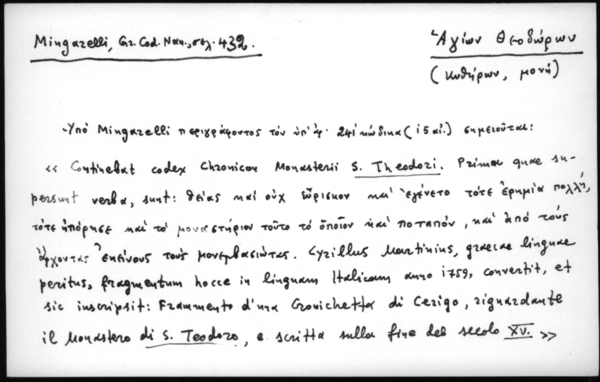 Mingarelli, Gr. Cod. Nan., σελ. 432.
Ἁγίων Θεοδώρων
(Κυθήρων, μονή)
Ὑπό Mingarelli περιγράφοντος τόν ὑπ' ἀρ. 241 κώδικα (15 αἰ.) σημειοῦται:
« Continebat codex Chronicon Monasterii S. Theodori. Primae quae su-
persunt verba, sunt: θείας καί οὐχ εὕρισκον καί ἐγένετο τότε ἐρημία πολλή,
τότε ἠπόρησε καί τό μοναστήριον τοῦτο τό ὁποῖον καί ποταπόν, καί ἀπό τούς
ἄρχοντας ἐκείνους τούς μονεμβασιώτας. Cyrillus Martinius, graecae linguae
peritus, fragmentum hocce in linguam Italicam anno 1759, convertit, et
sic inscripsit: Frammento d'una Cronichetta di Cerigo, riguardante
il Monastero di S. Teodoro, e scritta sulla fine del secolo XV. »